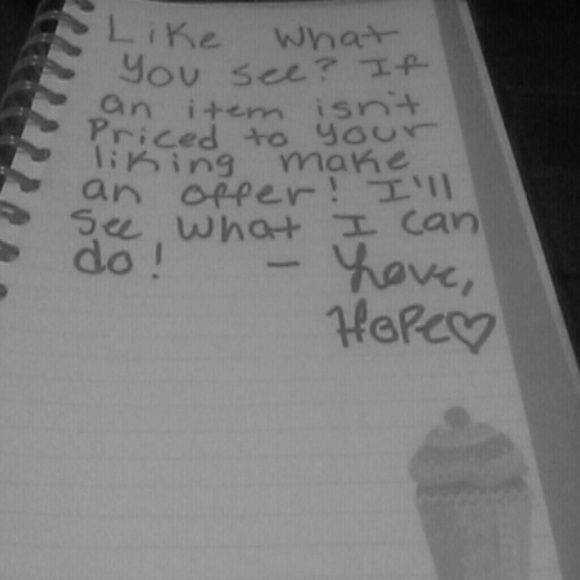 Like what
you see? If
an item isn't
Priced to your
liking make
an offer! I'll
see what I can
do! - Love,
Hope♡